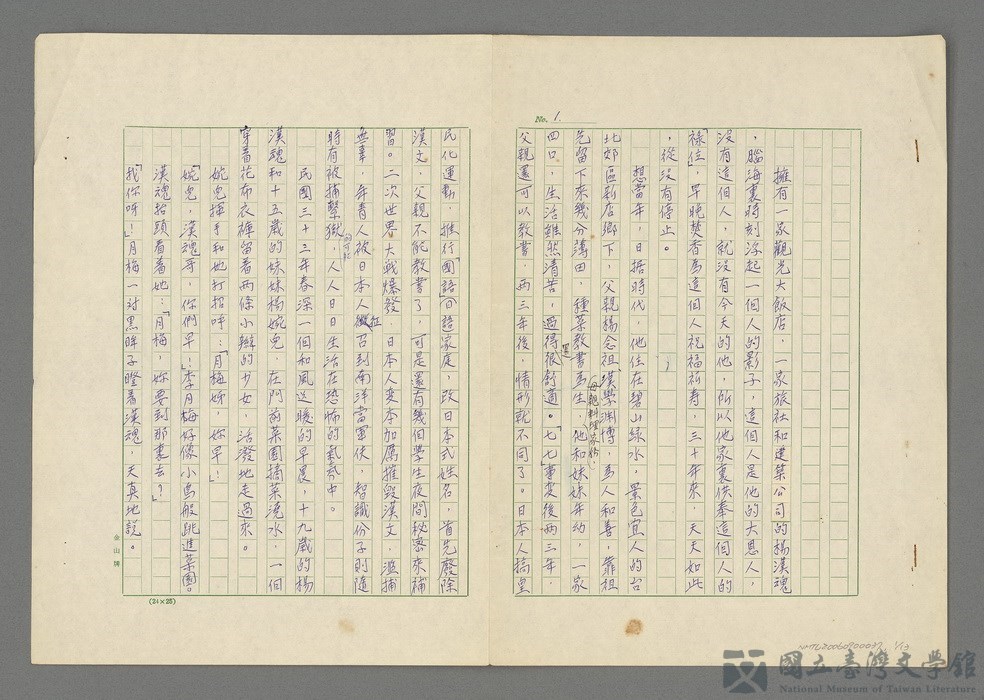 No. 1.
擁有一家觀光大飯店,一家旅社和建築公司的楊漢魂
,腦海裏時刻浮起一個人的影子,這個人是他的大恩人,
沒有這個人,就沒有今天的他,所以他家裏供奉這個人的
「祿位」,早晚焚香為這個人祝福祈壽,三十年來,天天如此
,從沒有停止。
想當年,日据時代,他住在碧山綠水,景色宜人的台
北郊區新店鄉下,父親楊念祖,漢學渊博,為人和善,靠祖
先留下來幾分薄田,種菜教書為生,母親料理家務,他和妹妹年幼,一家
四口,生活雖然清苦,過得很還舒適。「七七」事变後两三年,
父親還可以教書,两三年後,情形就不同了。日本人搞皇
民化運動,推行「國語」回語家庭,改日本式姓名,首先廢除
漢文,父親不能教書了,可是還有幾個學生夜間秘密來補
習。二次世界大戰爆發,日本人变本加厲摧毀漢文,濫捕
無辜,年青人被日本人徵征召到南洋當軍伕,智識份子則隨
時有被捕繫獄的可能,人人日日生活在恐怖的氣氛中。
民國三十三年春深一個和風送暖的早晨,十九歲的楊
漢魂和十五歲的妹妹楊婉兒,在門前菜園摘菜澆水,一個
穿着花布衣褲留着两條小辮的少女,活潑地走過來。
婉兒揮手和她打招呼:「月梅姊,妳早!」
「婉兒,漢魂哥,你們早!」李月梅好像小鳥般跳進菜園。
漢魂抬頭看着她:「月梅,妳要到那裏去?」
「找你呀!」月梅一对黑眸子瞪着漢魂,天真地說。
金山牌
(24×25)
NMTL20060900037 1/13
國立臺灣文學館
National Museum of Taiwan Literature